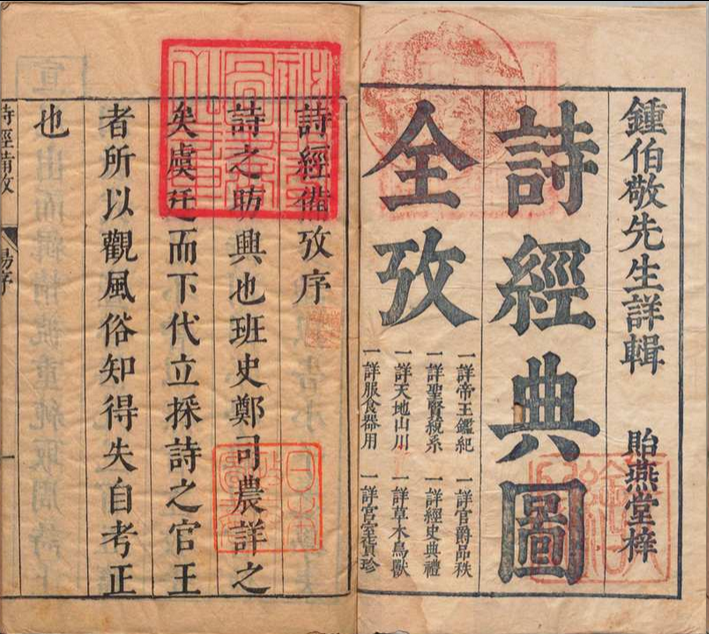 鍾伯敬先生詳輯　貽燕堂梓
詩經典圖
全攷
一詳帝王鑑紀　一詳官爵品秩
一詳聖賢統系　一詳經史典禮
一詳天地山川　一詳草木鳥獸
一詳服食器用　一詳宮室寶珍
詩經備攷序
詩之昉興也班史鄭司農詳之
矣虞廷而下代立採詩之官王
者所以觀風俗知得失自考正
也
詩經備攷